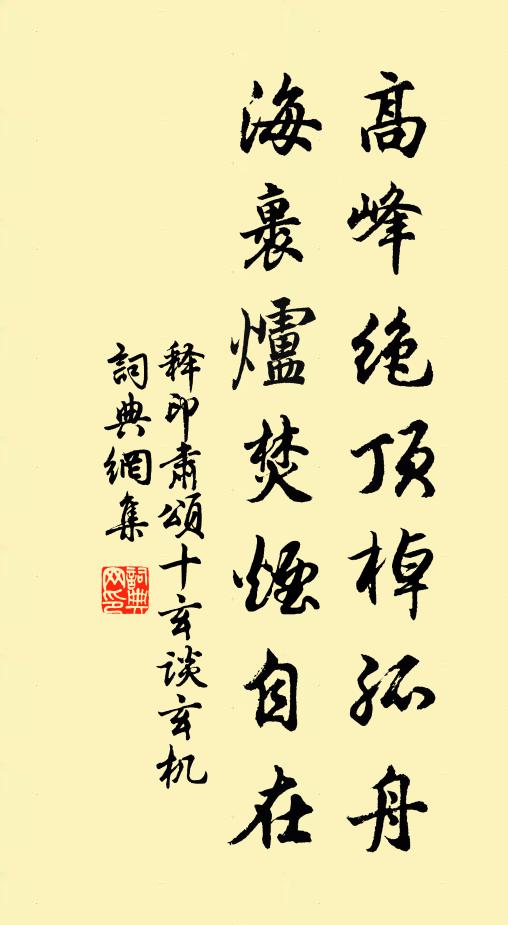 高峰絶頂棹孤舟
海裏爐焚煙自在
释印肅頌十玄谈玄机
詞典網集
詞典網印